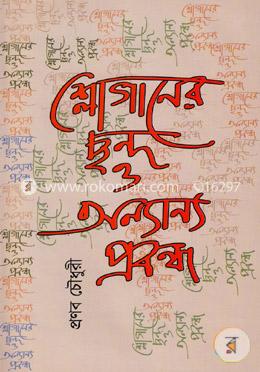 শ্লোগানের
ছন্দ
ও
অন্যান্য
প্রবন্ধ
প্রণব চৌধুরী
www.rokomari.com
16297